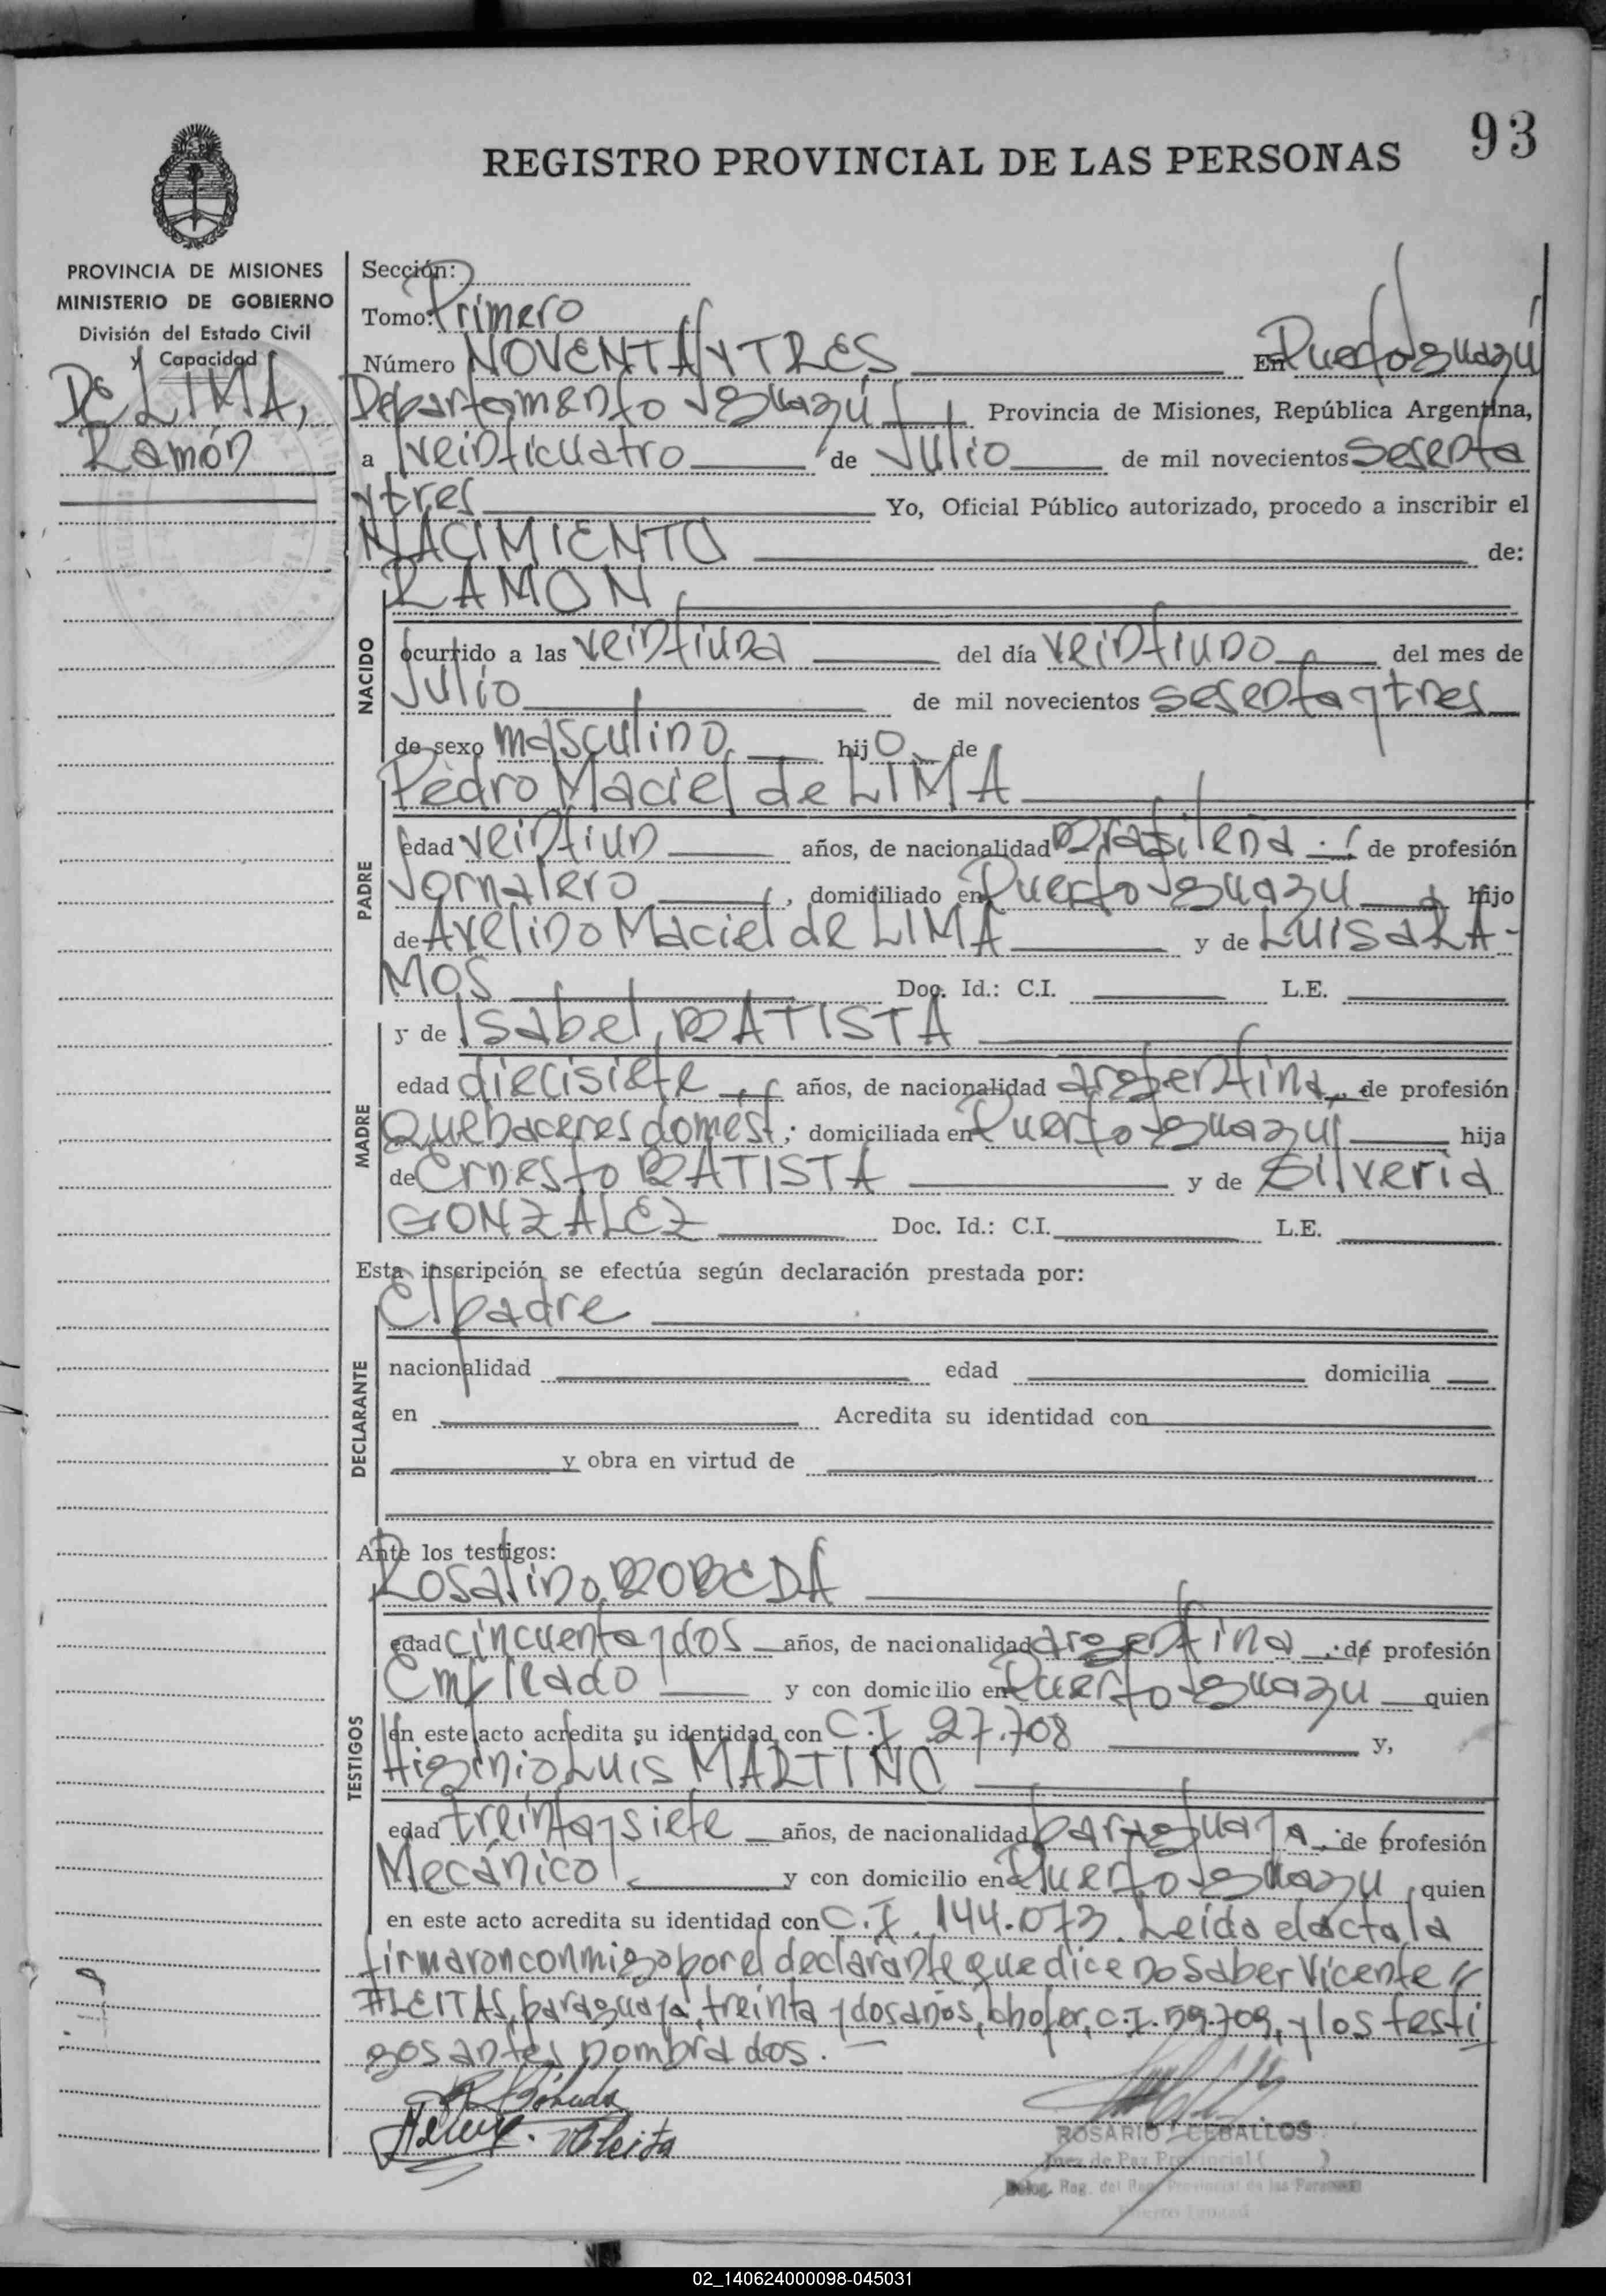 93
REGISTRO PROVINCIAL DE LAS PERSONAS
PROVINCIA DE MISIONES
MINISTERIO DE GOBIERNO
División del Estado Civil
y Capacidad
DE LIMA,
Ramón
Sección:
Tomo: Primero
Número NOVENTA Y TRES En Puerto Iguazú
Departamento Iguazú Provincia de Misiones, República Argentina,
a veinticuatro de Julio de mil novecientos sesenta
y tres Yo, Oficial Público autorizado, procedo a inscribir el
NACIMIENTO de:
RAMON
NACIDO
ocurrido a las veintiuna del día veintiuno del mes de
Julio de mil novecientos sesenta y tres
de sexo masculino hijo de
Pedro Maciel de LIMA
PADRE
edad veintiun años, de nacionalidad Brasileña de profesión
Jornalero, domiciliado en Puerto Iguazu hijo
de Avelino Maciel de LIMA y de Luisa RA-
MOS Doc. Id.: C.I. L.E.
MADRE
y de Isabel BATISTA
edad diecisiete años, de nacionalidad argentina, de profesión
Quehaceres domést; domiciliada en Puerto Iguazú hija
de Ernesto BATISTA y de Silveria
GONZALEZ Doc. Id.: C.I. L.E.
Esta inscripción se efectúa según declaración prestada por:
El padre
DECLARANTE
nacionalidad edad domicilia
en Acredita su identidad con
y obra en virtud de
Ante los testigos:
TESTIGOS
Rosalino BOBEDA
edad cincuenta y dos años, de nacionalidad argentina de profesión
Empleado y con domicilio en Puerto Iguazu quien
en este acto acredita su identidad con C.I 27.708 y,
Higinio Luis MARTINO
edad treinta y siete años, de nacionalidad paraguaya de profesión
Mecánico y con domicilio en Puerto Iguazu, quien
en este acto acredita su identidad con C.I. 144.073. Leída el acta la
firmaron conmigo por el declarante que dice no saber Vicente //
FLEITAS, paraguaya, treinta y dos años, chofer, C.I. 59.709, y los testi
gos antes nombrados.
ROSARIO CEBALLOS
Juez de Paz Provincial ( )
Deleg. Reg. del Reg. Provincial de las Personas
02_140624000098-045031